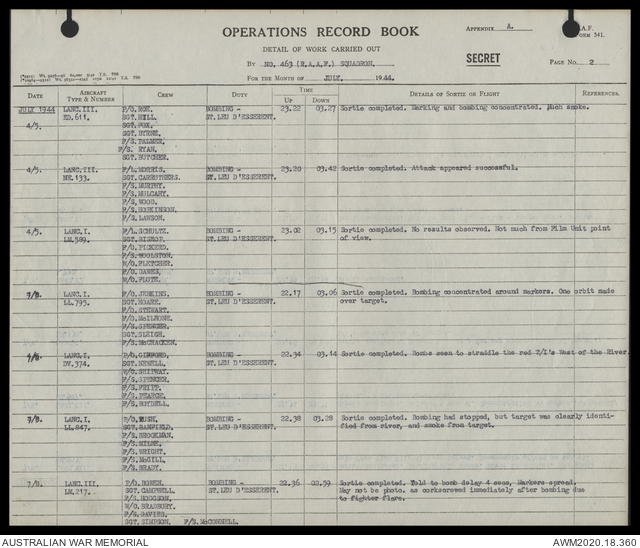 OPERATIONS RECORD BOOK
APPENDIX A.
FORM 541.
DETAIL OF WORK CARRIED OUT
BY NO. 463 (R.A.A.F.) SQUADRON.
SECRET
PAGE No. 2
FOR THE MONTH OF JULY, 1944.
DATE AIRCRAFT TYPE & NUMBER CREW DUTY TIME UP DOWN DETAILS OF SORTIE OR FLIGHT REFERENCES.
JULY 1944 LANC.III. P/O. ROE. BOMBING - 23.22 03.27 Sortie completed. Marking and bombing concentrated. Much smoke.
ED.611. SGT. HILL. ST.LEU D'ESSERENT.
4/5. SGT. FOX.
SGT. BYRNE.
F/S. PALMER.
F/S. RYAN.
SGT. BUTCHER.
4/5. LANC.III. F/L. MORRIS. BOMBING - 23.20 03.42 Sortie completed. Attack appeared successful.
NE.133. SGT. CARRUTHERS. ST.LEU D'ESSERENT.
F/S. MURPHY.
F/S. MULCAHY.
F/S. WOOD.
F/S. HOSKINSON.
F/S. LAWSON.
4/5. LANC.I. F/L. SCHULTZ. BOMBING - 23.02 03.15 Sortie completed. No results observed. Not much from Film Unit point
LM.589. SGT. BISHOP. ST.LEU D'ESSERENT. of view.
F/O. PICKERD.
F/S. WOOLSTON.
W/O. FLETCHER.
F/O. DAWES.
W/O. FLUTE.
7/8. LANC.I. F/O. JENKINS. BOMBING - 22.17 03.06 Sortie completed. Bombing concentrated around markers. One orbit made
LL.795. SGT. HOARE. ST.LEU D'ESSERENT. over target.
F/O. STEWART.
F/O. McILRONE.
F/S. SPENCER.
SGT. SLEIGH.
F/S. McCRACKEN.
7/8. LANC.I. BOMBING - 22.34 03.14 Sortie completed. Bombs seen to straddle the red T/I's West of the River.
DV.374. SGT. NEWELL. ST.LEU D'ESSERENT.
W/O. SHIPWAY.
F/S. SPENCER.
F/S. PETTT.
F/S. PEARCE.
F/S. BOYDELL.
7/8. LANC.I. P/O. RUSH. BOMBING - 22.38 03.28 Sortie completed. Bombing had stopped, but target was clearly identi-
LL.847. SGT. BANFIELD. ST.LEU D'ESSERENT. fied from river, and smoke from target.
F/S. BROCKMAN.
F/S. MILNE.
F/S. WRIGHT.
F/S. McGILL.
F/S. BRADY.
7/8. LANC.III. P/O. BOWEN. BOMBING - 22.36 02.59 Sortie completed. Told to bomb delay 4 secs, Markers spread.
LM.217. SGT. CAMPBELL. ST.LEU D'ESSERENT. May not be photo. as corkscrewed immediately after bombing due
F/S. HODGSON. to fighter flare.
W/O. BRADBURY.
F/S. DAVIES.
SGT. SIMPSON. F/S. McCONNELL.
AUSTRALIAN WAR MEMORIAL
AWM2020.18.360